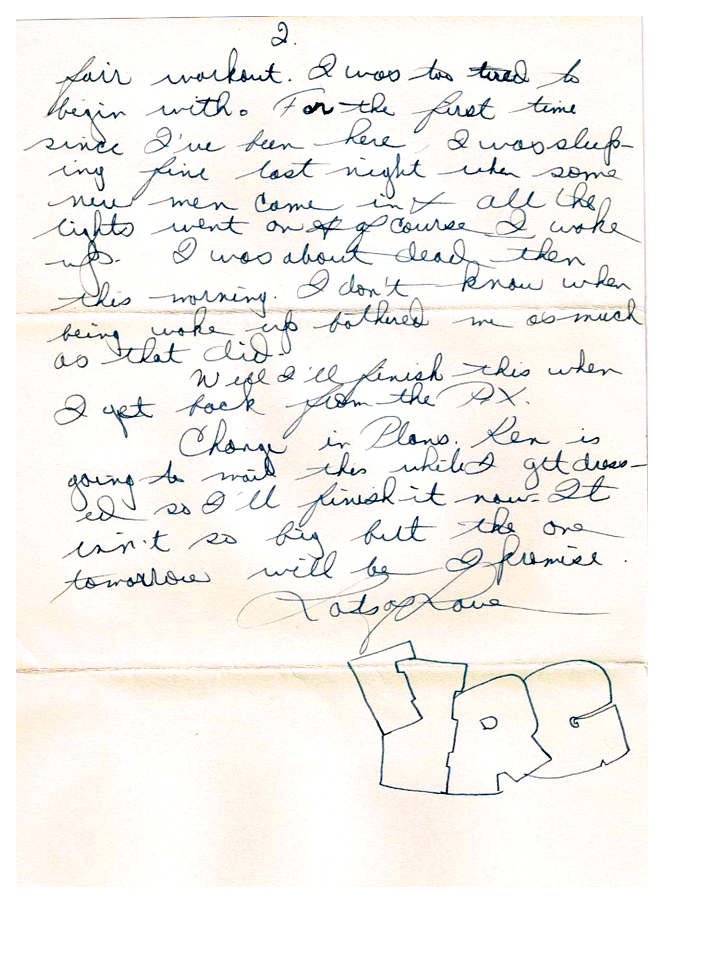 2.
fair workout. I was too tired to
begin with. For the first time
since I've been here, I was sleep-
ing fine last night when some
new men came in & all the
lights went on & of course I woke
up. I was about dead then
this morning. I don't know when
being woke up bothered me as much
as that did.
Well I'll finish this when
I get back from the PX.
Change in Plans. Ken is
going to mail this while I get dress-
ed so I'll finish it now. It
isn't so big but the one
tomorrow will be I promise.
Lots of Love
VRG